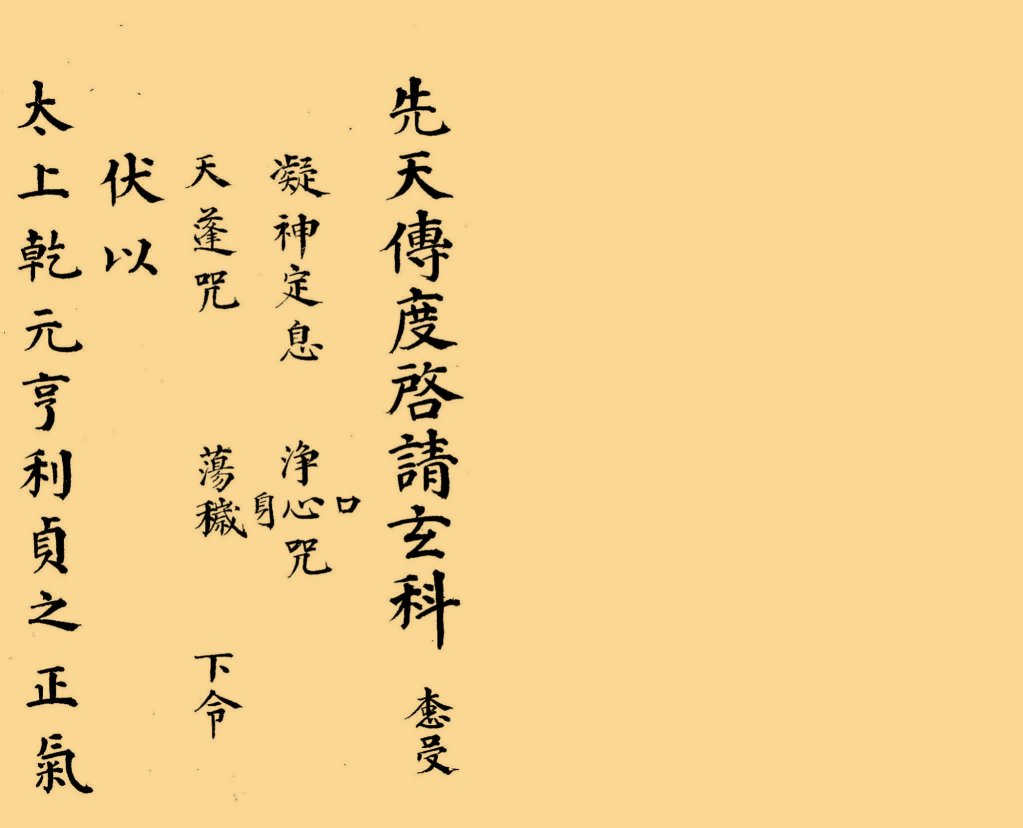 先天傳度啓請玄科 受
凝神定息 淨口心身咒
天蓬咒 蕩穢 下令
伏以
太上乾元亨利貞之正氣